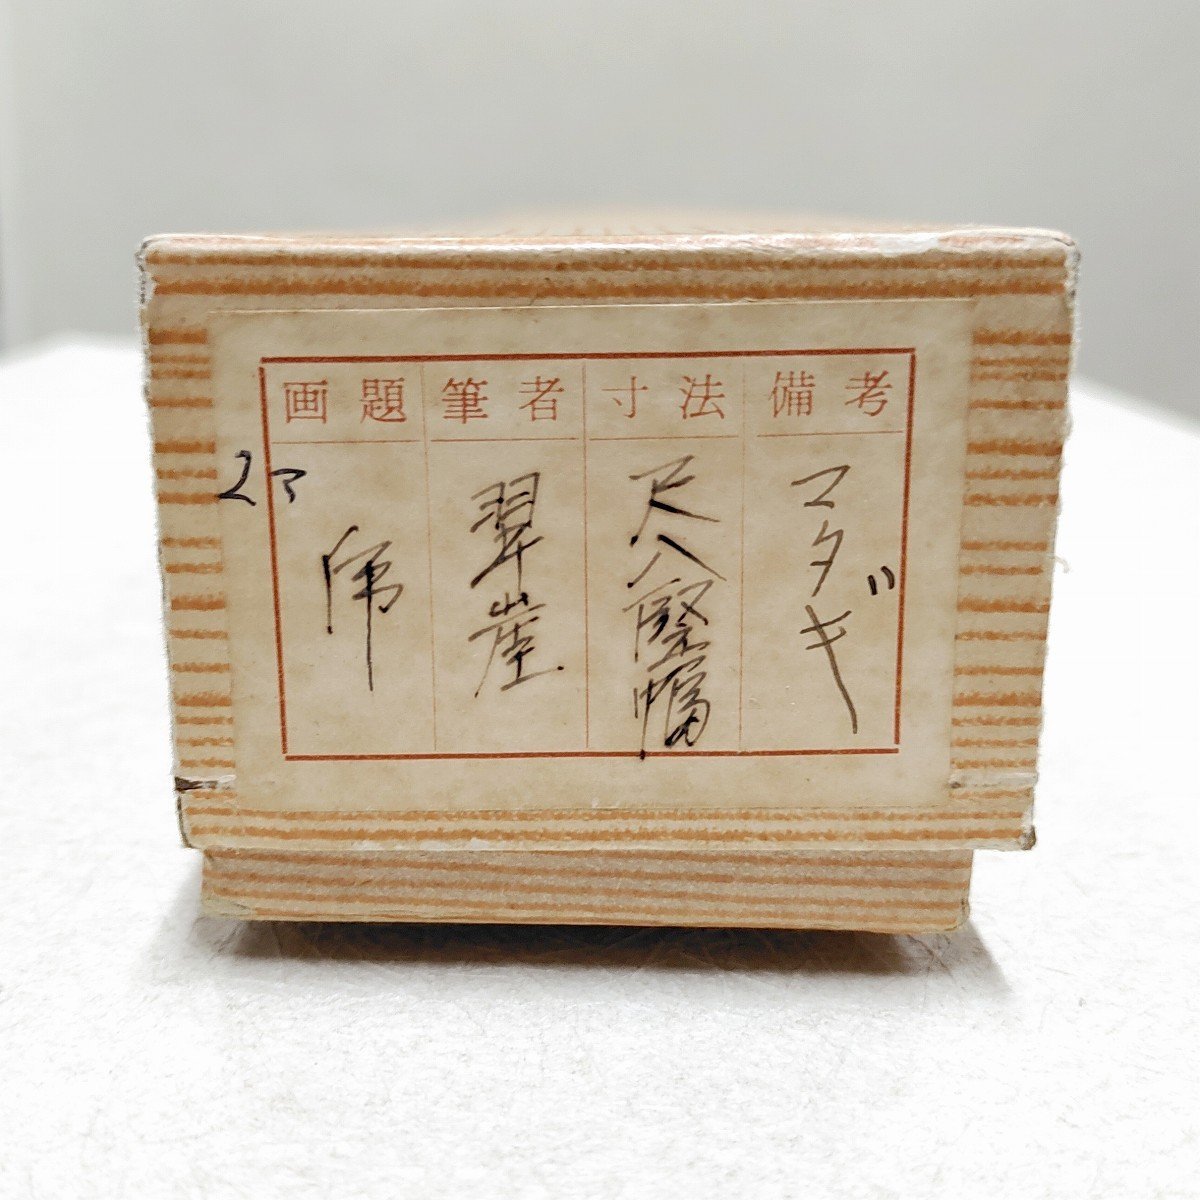 画題 筆者 寸法 備考
乕
翠崖
尺八竪幅
マタギ